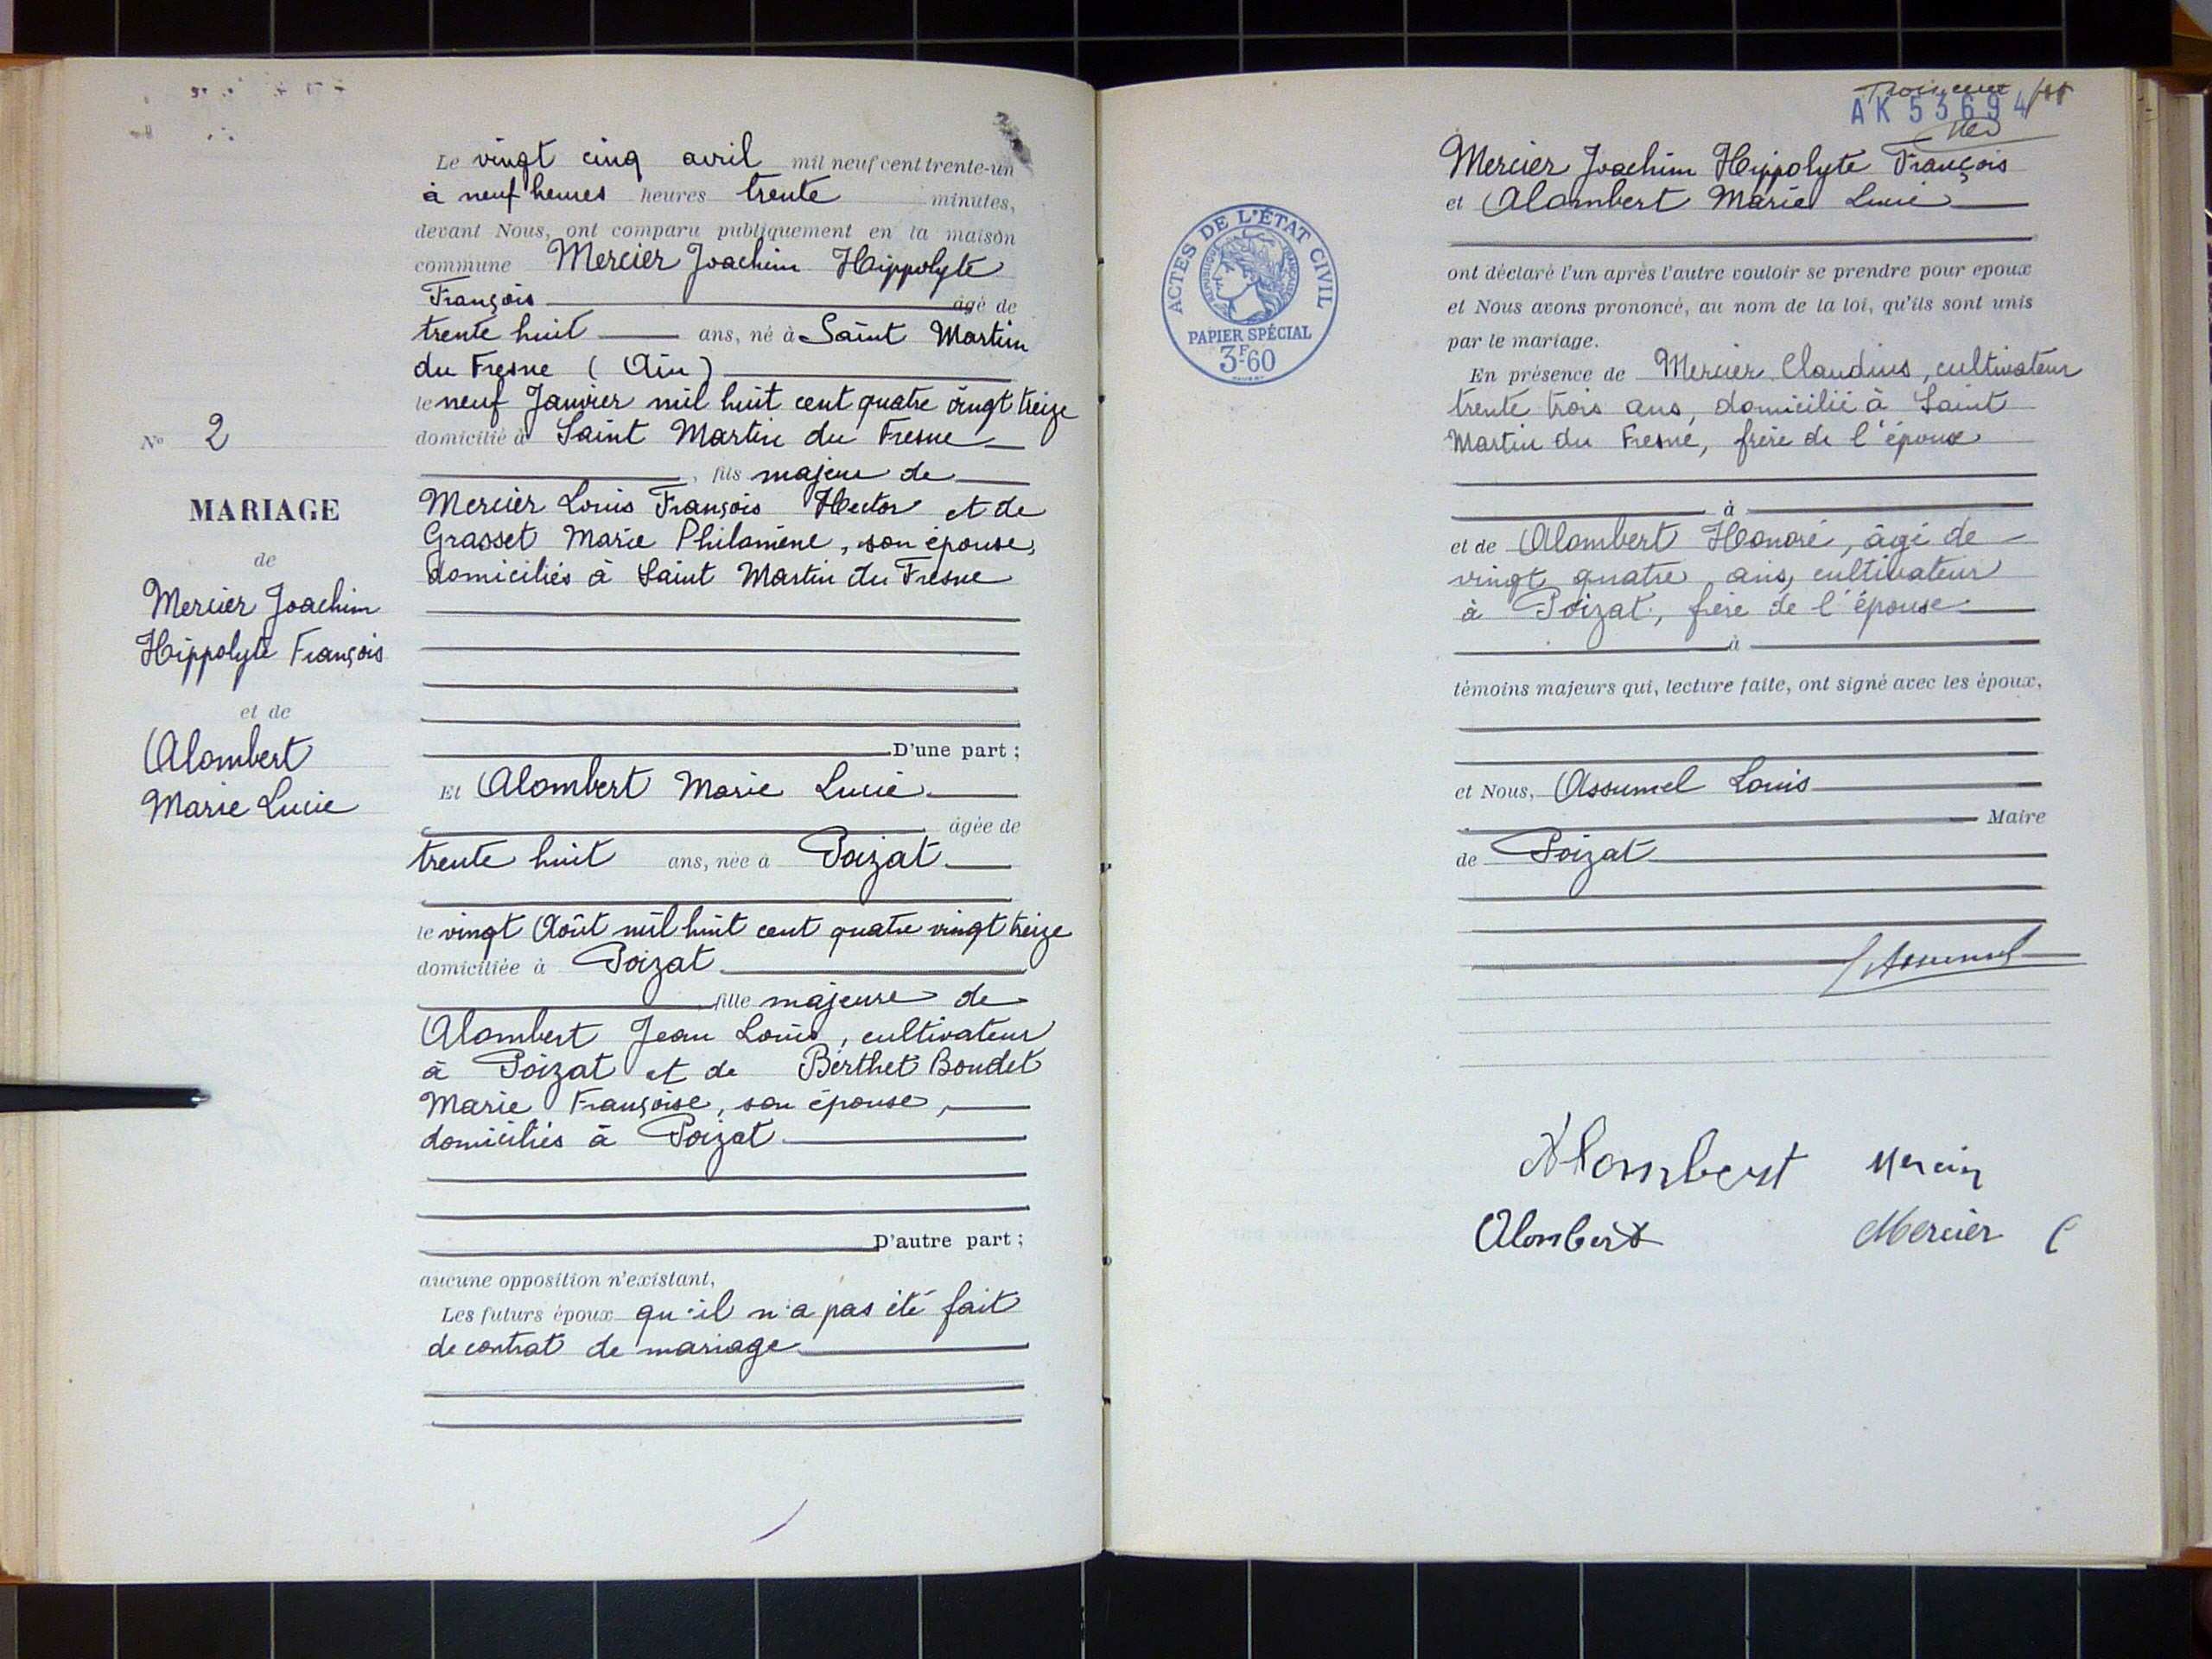 Le vingt cinq avril mil neuf cent trente-un
à neuf heures heures trente minutes,
devant Nous, ont comparu publiquement en la maison
commune Mercier Joachim Hippolyte
François âgé de
trente huit ans, né à Saint Martin
du Fresne (Ain)
le neuf Janvier mil huit cent quatre vingt treize
domicilié à Saint Martin du Fresne
, fils majeur de
Mercier Louis François Hector et de
Grasset Marie Philomène, son épouse,
domiciliés à Saint Martin du Fresne
D'une part ;
Et Alombert Marie Lucie
âgée de
trente huit ans, née à Poizat
le vingt Août mil huit cent quatre vingt treize
domiciliée à Poizat
, fille majeure de
Alombert Jean Louis, cultivateur
à Poizat et de Berthet Bondet
Marie Françoise, son épouse,
domiciliés à Poizat
D'autre part ;
aucune opposition n'existant,
Les futurs époux qu'il n'a pas été fait
de contrat de mariage
N° 2
MARIAGE
de
Mercier Joachim
Hippolyte François
et de
Alombert
Marie Lucie
AK 53694
Mercier Joachim Hippolyte François
et Alombert Marie Lucie
ont déclaré l'un après l'autre vouloir se prendre pour epoux
et Nous avons prononcé, au nom de la loi, qu'ils sont unis
par le mariage.
En présence de Mercier Claudius, cultivateur
trente trois ans, domicilié à Saint
Martin du Fresne, frère de l'époux
à
et de Alombert Honoré, âgé de
vingt quatre ans, cultivateur
à Poizat, frère de l'épouse
à
témoins majeurs qui, lecture faite, ont signé avec les époux,
et Nous, Assumel Louis
Maire
de Poizat
LAssumel
Alombert Mercier
Alombert Mercier C
ACTES DE L'ÉTAT CIVIL
RÉPUBLIQUE FRANÇAISE
PAPIER SPÉCIAL
3F60